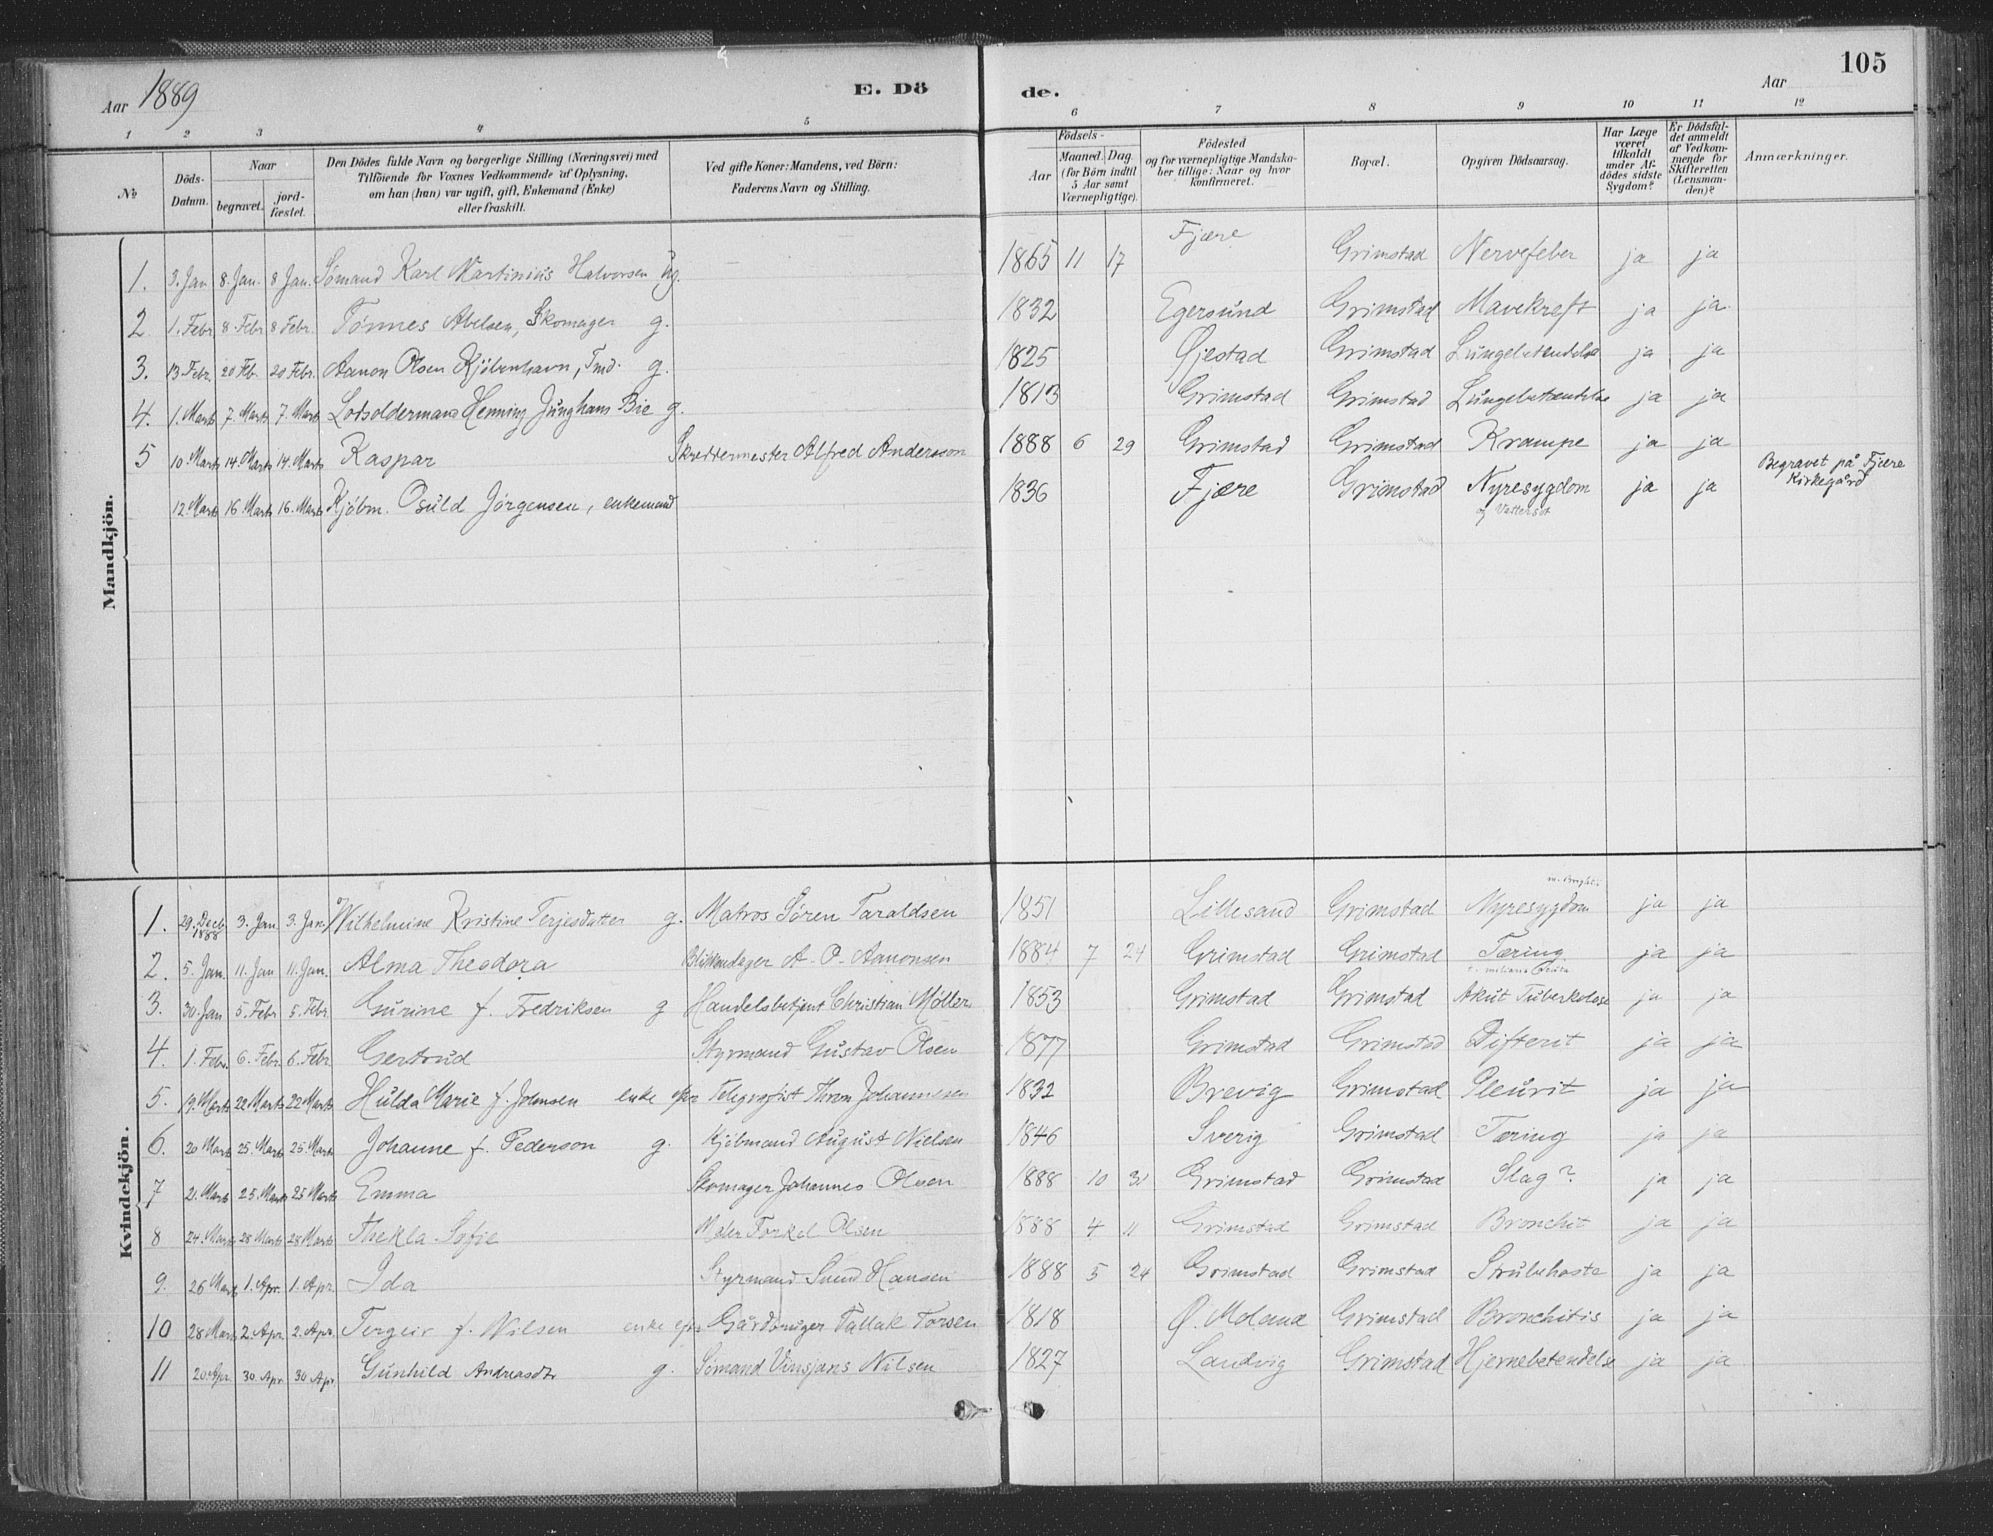 Aar 1889 E. Dö de. Aar 105
1 2 3 4 5 6 7 8 9 10 11 12
№ Döds-Datum. Naar begravet. jord-fæstet. Den Dödes fulde Navn og borgerlige Stilling (Næringsvei) med Tilföiende for Voxnes Vedkommende af Oplysning, om han (hun) var ugift, gift, Enkemand (Enke) eller fraskilt. Ved gifte Koner: Mandens, ved Börn: Faderens Navn og Stilling. Födsels- Aar Maaned. Dag. (for Börn indtil 5 Aar samt Værnepligtige). Födested og for værnepligtige Mandskaber tillige: Naar og hvor konfirmeret. Bopæl. Opgiven Dödsaarsag. Har Læge været tilkaldt under Afdödes sidste Sygdom? Er Dödsfaldet anmeldt af Vedkommende for Skifteretten (Lensmanden)? Anmærkninger.
Mandkjön.
1. 3. Jan 8. Jan. 8 Jan. Sömand Karl Martinius Halvorsen ug. 1865 11 17 Fjære Grimstad Nervefeber ja ja
2 1. Febr 8. Febr 8 Febr. Tönnes Abelsen, Skomager g. 1832 Egersund Grimstad Mavekreft ja ja
3. 13 Febr. 20 Feb. 20 Febr. Aanon Olsen Kjöbenhavn, Tmd. g. 1825 Øjestad Grimstad Lungebetendelse ja ja
4. 1. Marts 7. Marts 7. Marts Lodsoldermand Henning Junghans Bie g. 1813 Grimstad Grimstad Lungebetændelse ja ja
5 10. Marts 14. Marts 14. Marts Kaspar Skreddermester Alfred Anderson 1888 6 29 Grimstad Grimstad Krampe ja ja
12 Marts 16 Marts 16. Marts Kjöbm. Osuld Jörgensen, enkemand 1836 Fjære Grimstad Nyresygdom og Vattersot ja ja Begravet på Fjære Kirkegård
Kvindekjön.
1. 29. Decb. 1888 3. Jan 3. Jan. Wilhelmine Kristine Terjesdatter g. Matros Sören Taraldsen 1851 Lillesand Grimstad Nyresygdom m. Brightii ja ja
2. 5. Jan. 11. Jan 11. Jan. Alma Theodora Blikkenslager A. O. Aanonsen 1884 7 24 Grimstad Grimstad Tæring ja ja
3. 30. Jan 5. Febr 5. Febr. Gurine f. Fredriksen g Handelsbetjent Christian Möller 1853 Grimstad Grimstad Akut Tuberkulose ja ja
4. 1. Febr. 6. Febr 6. Febr Gertrud Styrmand Gustav Olsen 1877 Grimstad Grimstad Difterit ja ja
5. 19. Marts 22 Marts 22 Marts Hulda Marie f. Johnsen enke efter Telegrafist Thron Johannesen 1832 Brevig Grimstad Pleurit ja ja
6. 20 Marts 25. Marts 25. Marts Johanne f. Pederson g. Kjöbmand August Nielsen 1846 Sverig Grimstad Tæring ja ja
7 21. Marts 25. Marts 25 Marts Emma Skomager Johannes Olsen 1888 10 31 Grimstad Grimstad Slag? ja ja
8 24. Marts 28 Marts 28 Marts Thekla Sofie Maler Torkel Olsen 1888 4 11 Grimstad Grimstad Bronchit ja ja
9. 26 Marts 1. Apr. 1. Apr Ida Styrmand Hansen 1888 5 24 Grimstad Grimstad Strubehoste ja ja
10 28 Marts 2. Apr. 2. Apr. Tergeir f. Nilsen enke efter Gårdbruger Tallak Torsen 1818 Ø. Moland Grimstad Bronchitis ja ja
11 20. Apr. 30. Apr. 30 Apr. Gunhild Andreasdtr g. Sömand Vinsjans Nilsen 1827 Landvig Grimstad Hjernebetendelse ja ja